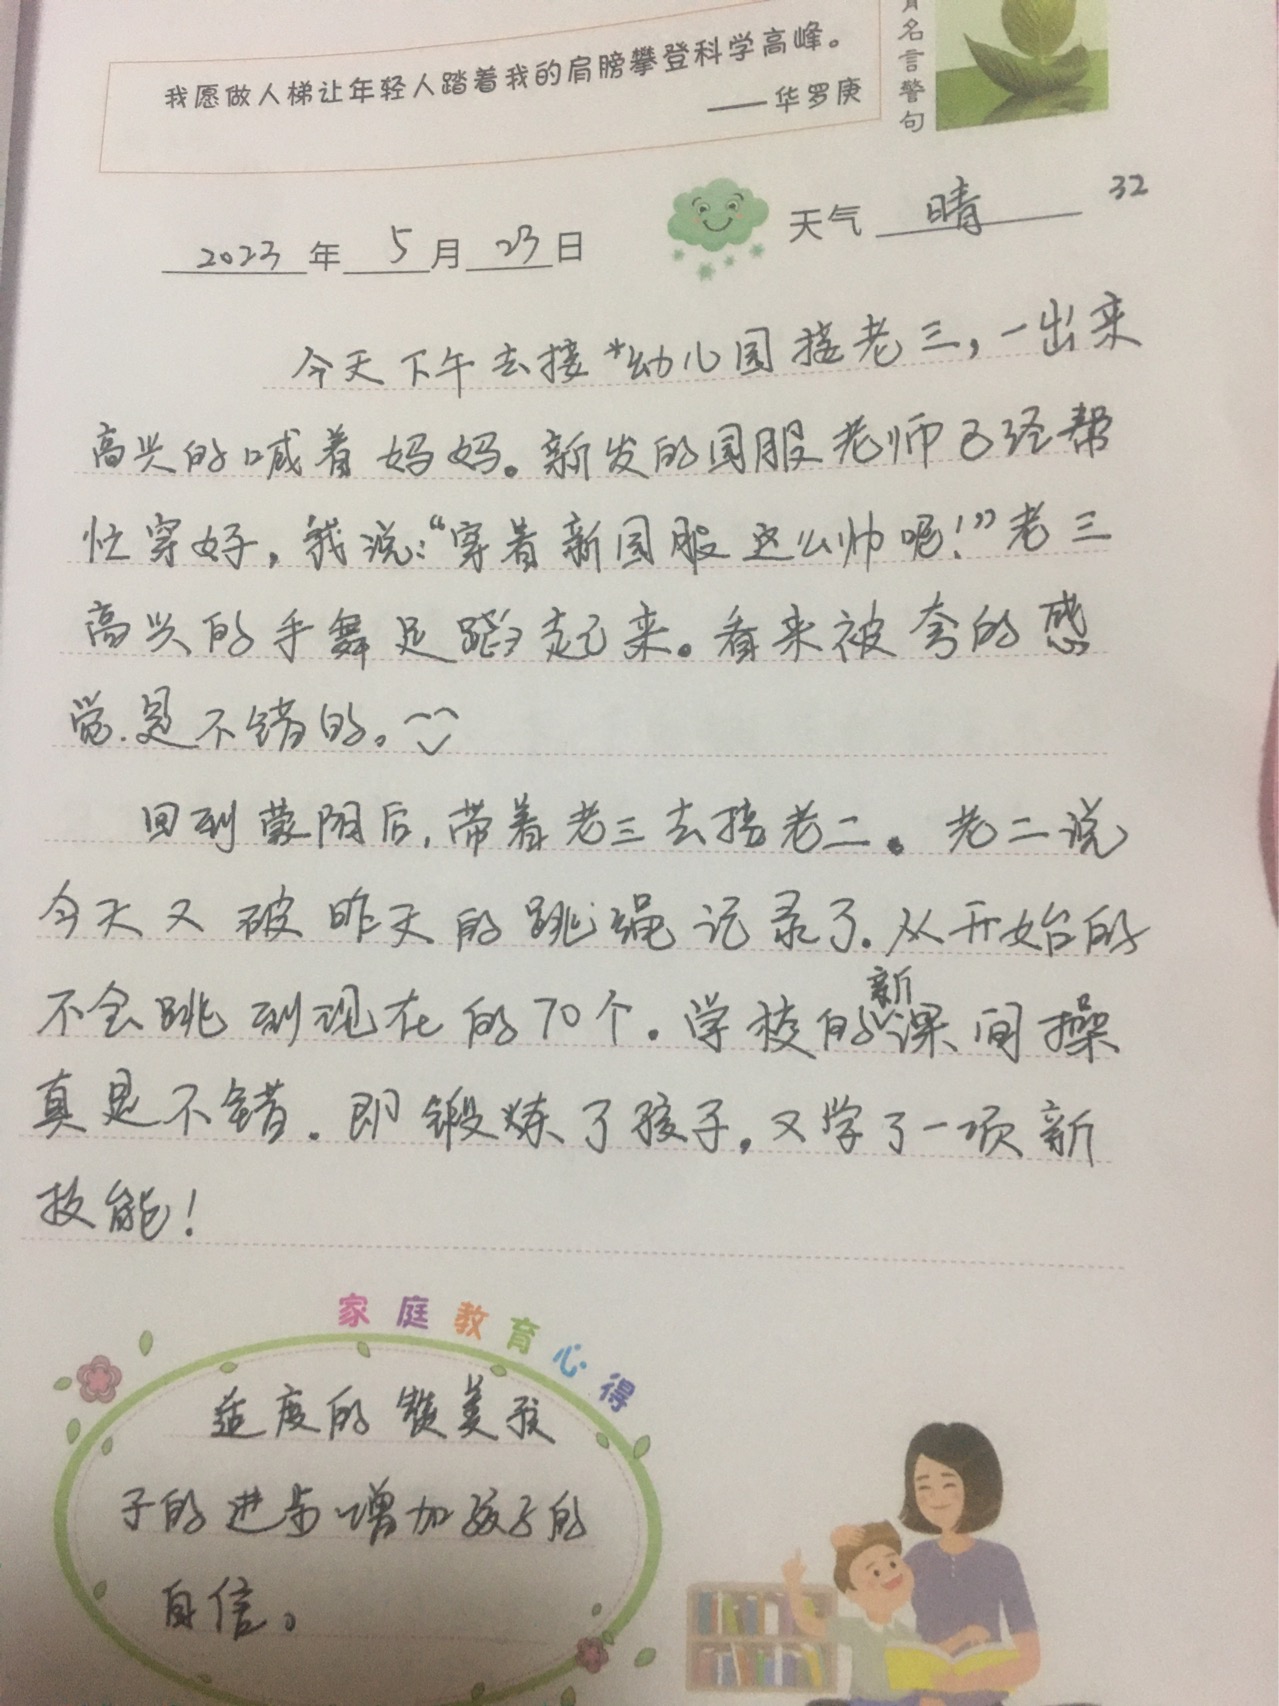 我愿做人梯让年轻人踏着我的肩膀攀登科学高峰。
——华罗庚
名言警句
2023年5月23日
天气 晴
32
今天下午去接*幼儿园接老三，一出来
高兴的喊着妈妈。新发的园服老师已经帮
忙穿好，我说：“穿着新园服这么帅呢！”老三
高兴的手舞足蹈起来。看来被夸的感
觉是不错的。
回到蒙阴后，带着老三去接老二。老二说
今天又破昨天的跳绳记录了。从开始的
不会跳到现在的70个。学校的新课间操
真是不错。即锻炼了孩子，又学了一项新
技能！
家庭教育心得
适度的赞美孩
子的进步增加孩子的
自信。